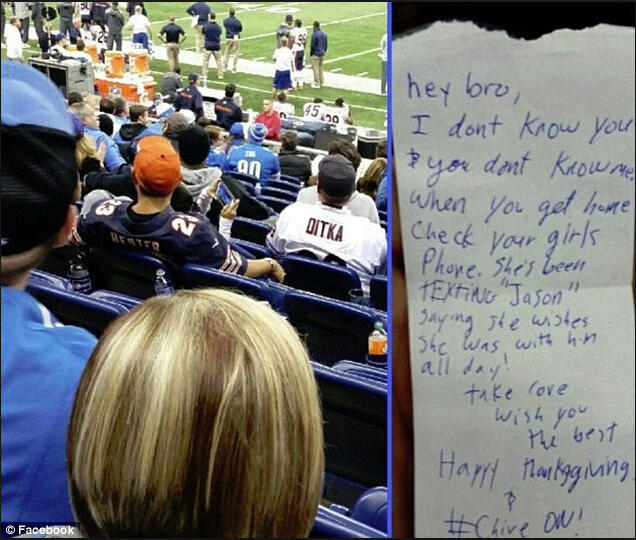 HESTER
23
SUH
90
DITKA
95
hey bro,
I dont know you
& you dont know me,
when you get home
Check your girls
Phone. She's been
TEXTING "Jason"
Saying she wishes
She was with him
all day!
take care
wish you
the best
Happy Thanksgiving
&
#Chive ON!
© Facebook